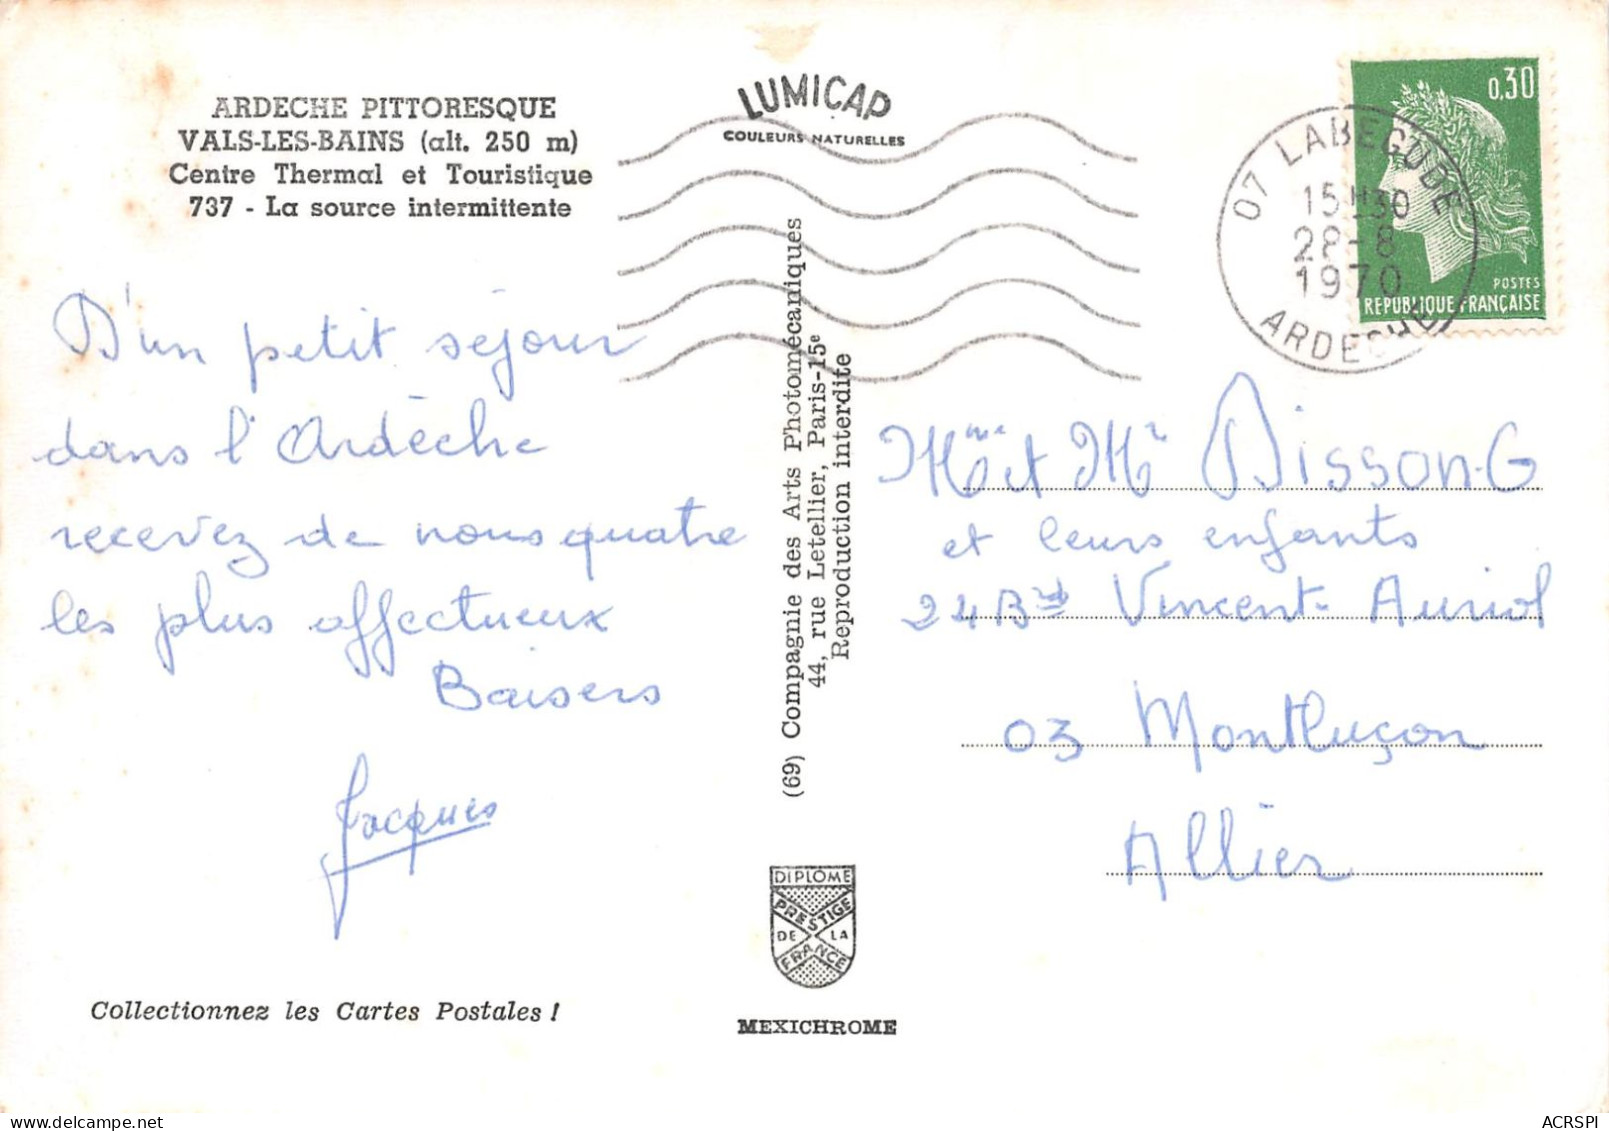 ARDECHE PITTORESQUE
VALS-LES-BAINS (alt. 250 m)
Centre Thermal et Touristique
737 - La source intermittente
D'un petit séjour
dans l'Ardèche
recevez de nous quatre
les plus affectueux
Baisers
Jacques
Collectionnez les Cartes Postales !
LUMICAP
COULEURS NATURELLES
(69) Compagnie des Arts Photomécaniques
44, rue Letellier, Paris-15e
Reproduction interdite
DIPLÔME
PRESTIGE
DE LA
FRANCE
MEXICHROME
0,30
POSTES
REPUBLIQUE FRANÇAISE
07 LABEGUDE
15H30
28-8
1970
ARDECHE
Mme et Mr Disson-G
et leurs enfants
24 Bd Vincent-Auriol
03 Montluçon
Allier
ACRSPI